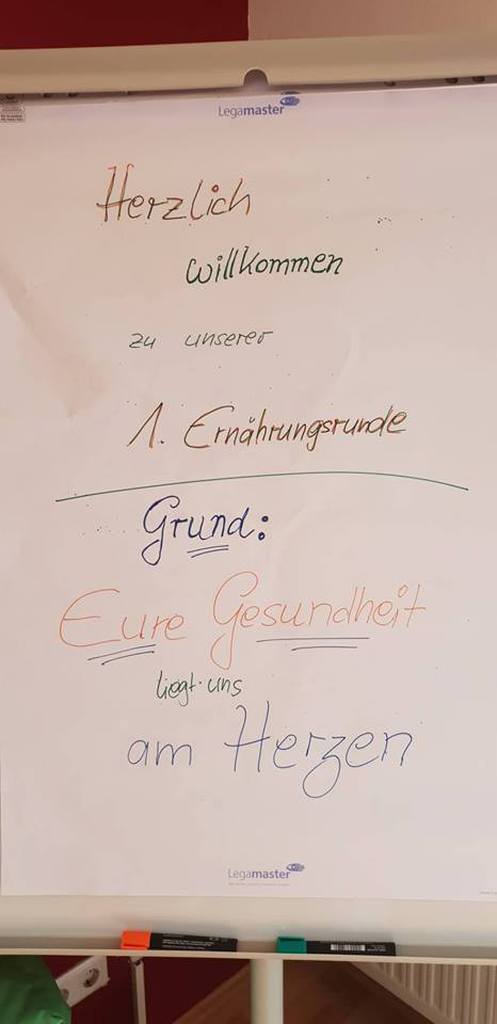 Legamaster
Herzlich
willkommen
zu unserer
1. Ernährungsrunde
Grund:
Eure Gesundheit
liegt uns
am Herzen
Legamaster